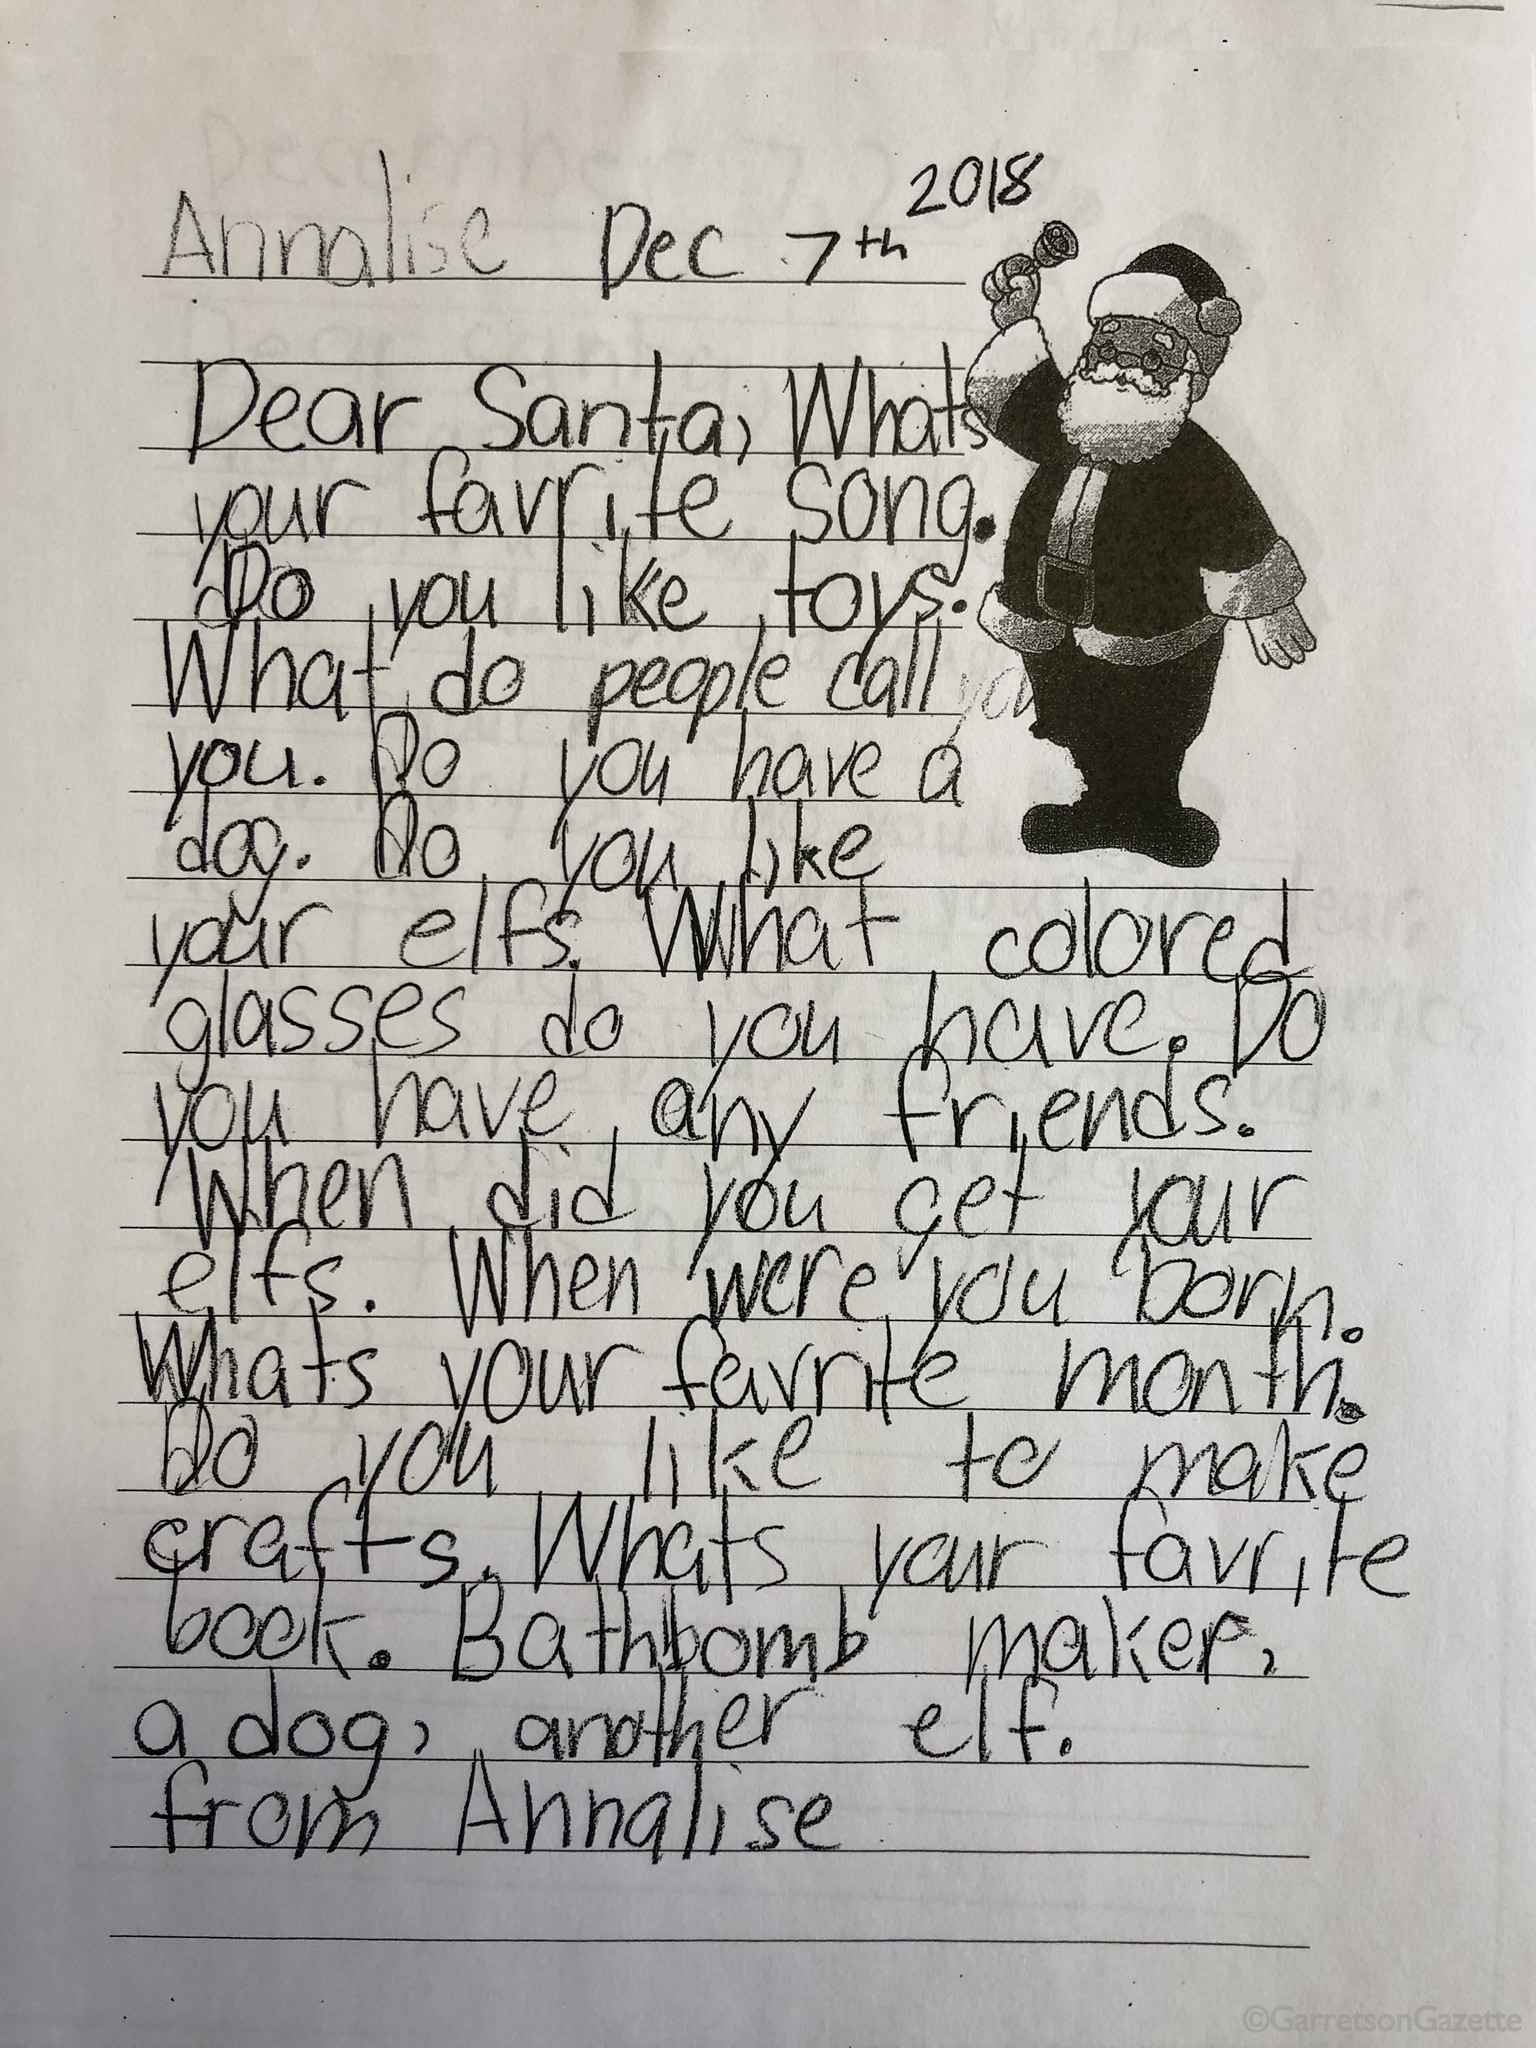 Annalise Dec 7th 2018
Dear Santa, Whats
your favrite song.
Do you like toys.
What do people call you
you. Do you have a
dog. Do you like
your elfs. What colored
glasses do you have. Do
you have any friends.
When did you get your
elfs. When were you born.
Whats your favrite month.
Do you like to make
crafts. Whats your favrite
book. Bathbomb maker,
a dog, another elf.
from Annalise
©GarretsonGazette